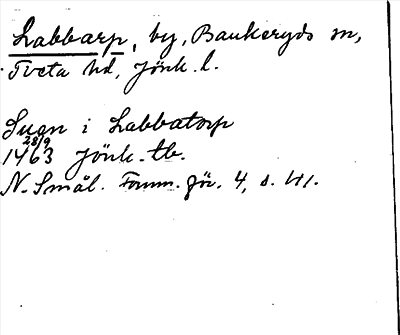 Labbarp, by, Bankeryds sn,
Tveta hd, Jönk. l.
Suen i Labbatorp
28/9
1463 Jönk. tb.
N. Smål. Fornm. för. 4, s. 41.